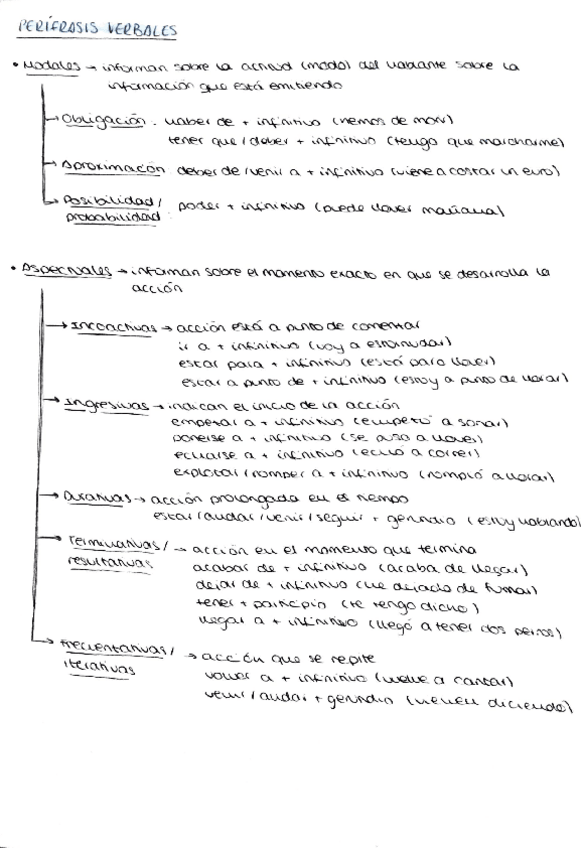 PERÍFRASIS VERBALES
• Modales → informan sobre la actitud (modo) del hablante sobre la
información que está emitiendo
→ Obligación: haber de + infinitivo (hemos de morir)
tener que / deber + infinitivo (tengo que marcharme)
→ Aproximación: deber de / venir a + infinitivo (viene a costar un euro)
→ Posibilidad / probabilidad: poder + infinitivo (puede llover mañana)
• Aspectuales → informan sobre el momento exacto en que se desarrolla la
acción
→ Incoactivas → acción está a punto de comenzar
ir a + infinitivo (voy a estornudar)
estar para + infinitivo (está para llover)
estar a punto de + infinitivo (estoy a punto de llorar)
→ Ingresivas → indican el inicio de la acción
empezar a + infinitivo (empezó a sonar)
ponerse a + infinitivo (se puso a llover)
echarse a + infinitivo (echó a correr)
explotar / romper a + infinitivo (rompió a llorar)
→ Durativas → acción prolongada en el tiempo
estar / andar / venir / seguir + gerundio (estoy hablando)
→ Terminativas / → acción en el momento que termina
resultativas
acabar de + infinitivo (acaba de llegar)
dejar de + infinitivo (he dejado de fumar)
tener + participio (te tengo dicho)
llegar a + infinitivo (llegó a tener dos perros)
→ Frecuentativas / → acción que se repite
iterativas
volver a + infinitivo (vuelve a cantar)
venir / andar + gerundio (vienen diciendo)